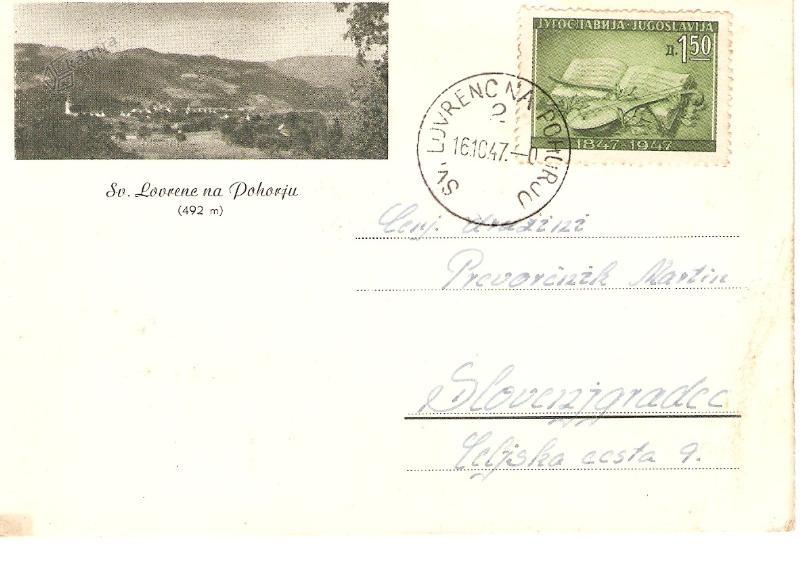 kamra
ЈУГОСЛАВИЈА · JUGOSLAVIJA
Д. 1.50
1847-1947
SV. LOVRENC NA POHORJU
2
16.10.47.-0
Sv. Lovrenc na Pohorju
(492 m)
Cenj. družini
Prevorčnik Martin
Slovenjgradec
Celjska cesta 9.